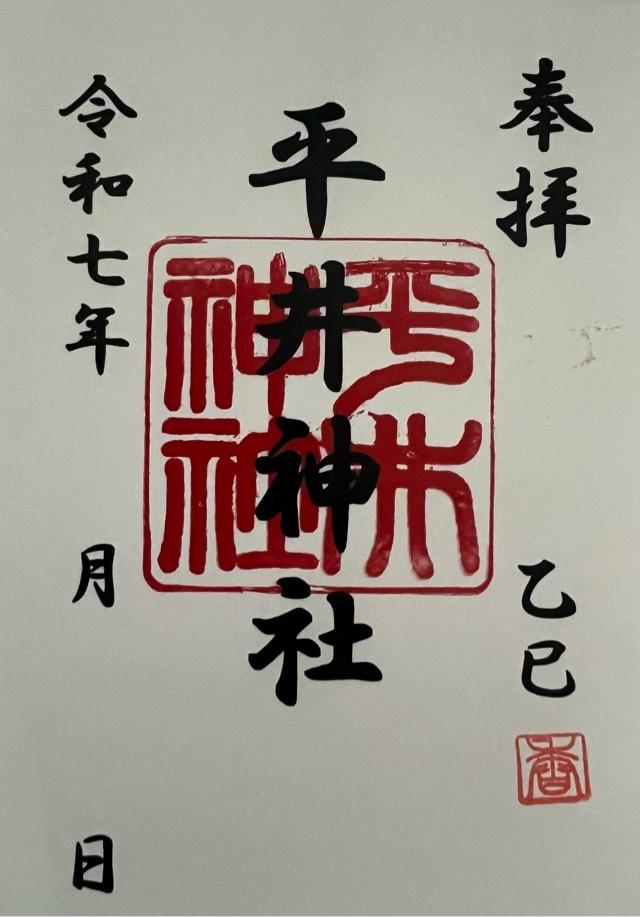 奉拝
乙巳
香
平井神社
平井神社
令和七年 月 日